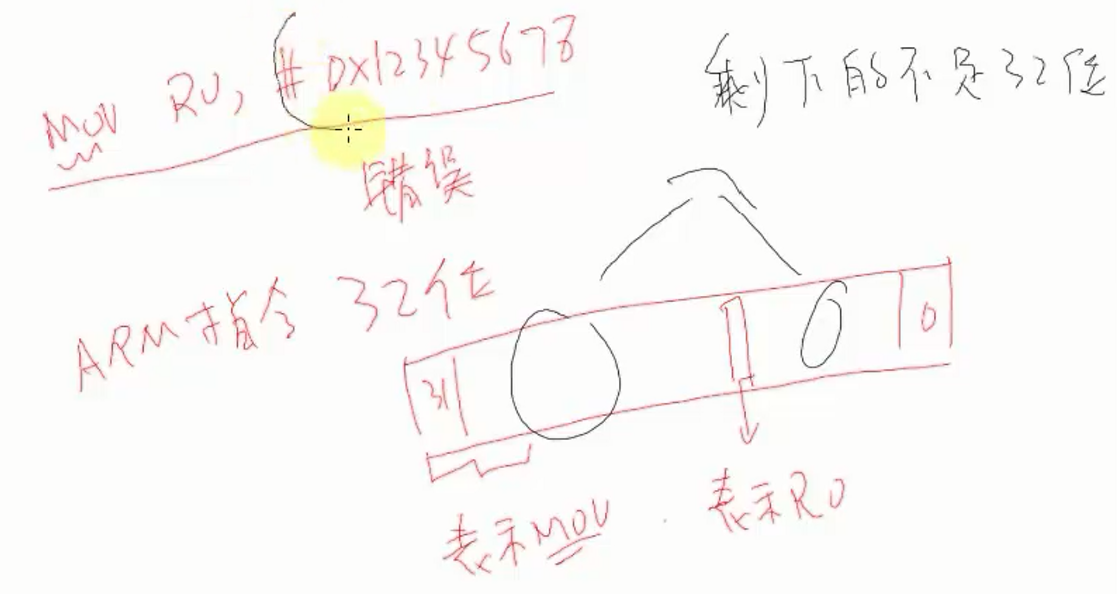 MOV R0, # 0X12345678
剩下的不足32位
错误
ARM指令 32位
31 0
表示MOV . 表示R0